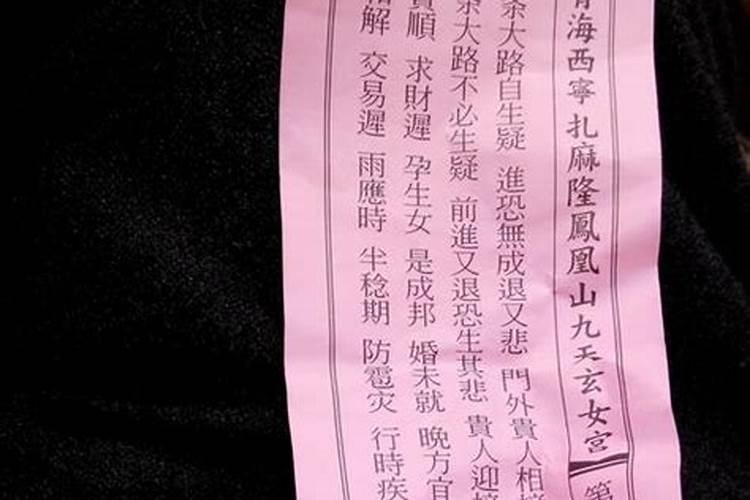 海西寧扎麻隆鳳凰山九天玄女宮
大路自生疑 進恐無成退又悲 門外貴人相
大路不必生疑 前進又退恐生其悲 貴人迎
順 求財遲 孕生女 是成邦 婚未就 晚方宜
解 交易遲 雨應時 半稔期 防雹灾 行時疾